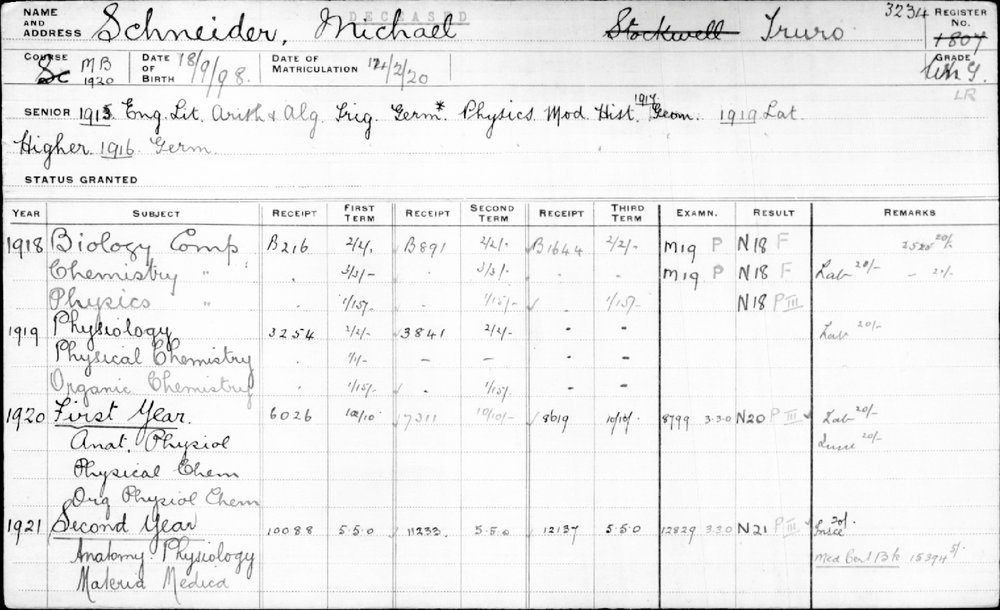 DECEASED
NAME AND ADDRESS Schneider, Michael Stockwell Truro 3234 REGISTER No. 1807
COURSE Sc MB 1920 DATE OF BIRTH 18/9/98. DATE OF MATRICULATION 12/2/20 GRADE
LR
SENIOR 1915 Eng. Lit. Arith & Alg. Trig. Germ* Physics Mod. Hist. 1917 Geom. 1919 Lat.
Higher 1916 Germ.
STATUS GRANTED
YEAR SUBJECT RECEIPT FIRST TERM RECEIPT SECOND TERM RECEIPT THIRD TERM EXAMN. RESULT REMARKS
1918 Biology Comp B216 2/2/. B891 2/2/. B1644 2/2/- M19 P N18 F 20/-
Chemistry " . 3/3/- . 3/3/- . M19 P N18 F Lab 20/-
Physics " . 1/15/- . 1/15/- 1/15/- N18 P III
1919 Physiology 3254 2/2/- 3841 2/2/- - - Lab 20/-
Physical Chemistry . 1/1/- - - - -
Organic Chemistry . 1/15/- . 1/15/.
1920 First Year. 6026 10/10 7311 10/10/- 8619 10/10/. 8799 3.3.0 N20 P III Lab 20/-
Anat. Physiol 20/-
Physical Chem
Org Physiol Chem
1921 Second Year 10088 5.5.0 11233 5.5.0 12137 5.5.0 12829 3.3.0 N21 P III 20/.
Anatomy. Physiology 15394 5/-
Materia Medica